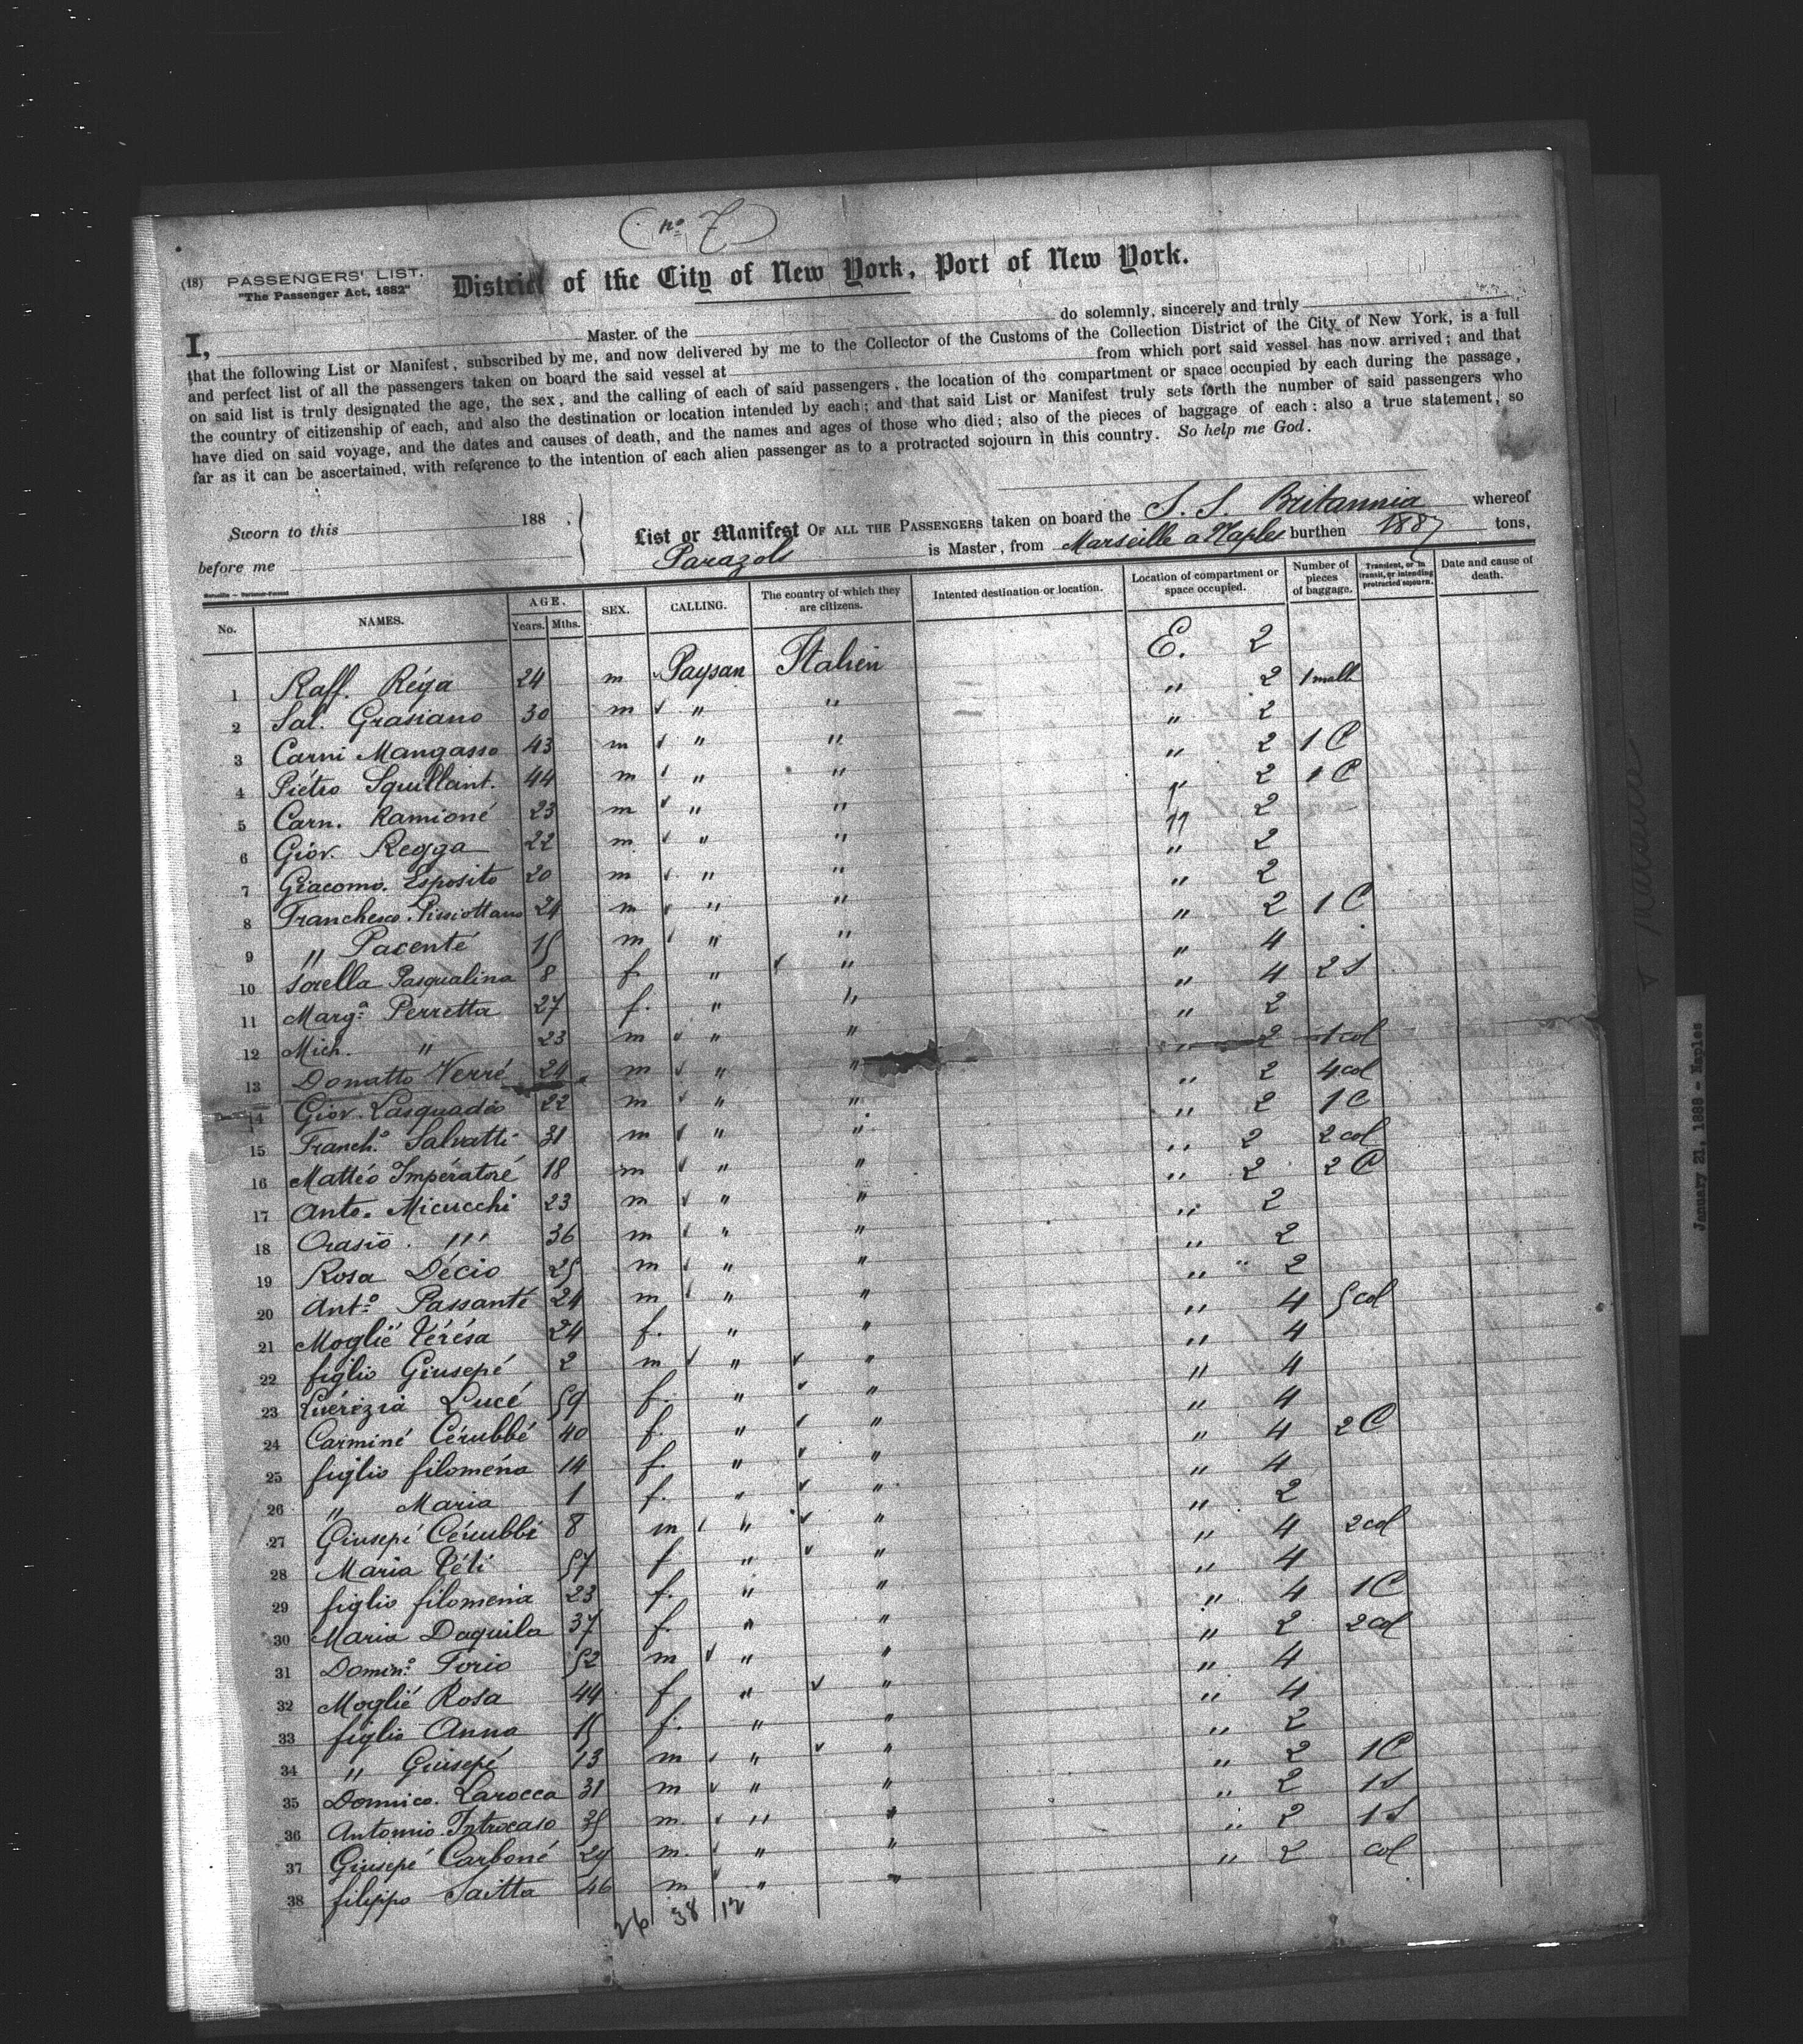 (nº 7)
(18) PASSENGERS' LIST.
"The Passenger Act, 1882"
District of the City of New York, Port of New York.
I, Master of the do solemnly, sincerely and truly
that the following List or Manifest, subscribed by me, and now delivered by me to the Collector of the Customs of the Collection District of the City of New York, is a full
and perfect list of all the passengers taken on board the said vessel at from which port said vessel has now arrived; and that
on said list is truly designated the age, the sex, and the calling of each of said passengers, the location of the compartment or space occupied by each during the passage,
the country of citizenship of each, and also the destination or location intended by each; and that said List or Manifest truly sets forth the number of said passengers who
have died on said voyage, and the dates and causes of death, and the names and ages of those who died; also of the pieces of baggage of each: also a true statement, so
far as it can be ascertained, with reference to the intention of each alien passenger as to a protracted sojourn in this country. So help me God.
Sworn to this 188 .
before me
List or Manifest OF ALL THE PASSENGERS taken on board the S. S. Britannia whereof
Parazols is Master, from Marseille a Naples burthen 1887 tons,
No. NAMES. AGE. Years. Mths. SEX. CALLING. The country of which they are citizens. Intented destination or location. Location of compartment or space occupied. Number of pieces of baggage. Transient, or in transit, or intending protracted sojourn. Date and cause of death.
1 Raff. Réga 24 m Paysan Italien E. 2
2 Sal. Grasiano 30 m " " " 2 1 malle
3 Carni Mangasso 43 m " " " 2
4 Piétro Squillant. 44 m " " " 2 1 C
5 Carn. Ramioné 23 m " " " 2 1 C
6 Giov. Regga 22 m " " " 2
7 Giacomo. Esposito 20 m " " " 2
8 Franchesco 24 m " " " 2
9 " Pacenté 15 m " " " 2 1 C
10 Sorella Pasqualina 8 f " " " 4
11 Margª Perretta 27 f. " " " 4 2 S
12 Mich. " 23 m " " " 2
13 Donatto Verré 24 m " " " 2 1 col
14 Giov. Lasquadéo 22 m " " " 2 4 col
15 Franchº Salvatti 31 m " " " 2 1 C
16 Mattéo Impératoré 18 m " " " 2 2 col
17 Anto. Micucchi 23 m " " " 2 2 C
18 Orasio " 36 m " " " 2
19 Rosa Décio 25 m " " " 2
20 Antº Passanté 24 m " " " 2
21 Moglié Térésa 24 f. " " " 4 5 col
22 figlio Giusepé 2 m " " " 4
23 Luérézia Lucé 59 f. " " " 4
24 Carminé Cérubbé 40 f. " " " 4
25 figlio filoména 14 f. " " " 4 2 C
26 " Maria 1 f. " " " 4
27 Giusepé Cérubbé 8 m " " " 2
28 Maria Téti 57 f. " " " 4 2 col
29 figlio filoména 23 f. " " " 4
30 Maria Daquila 37 f. " " " 4 1 C
31 Dominº Torio 52 m " " " 2 2 col
32 Moglié Rosa 44 f " " " 4
33 figlio Anna 15 f. " " " 4
34 " Giusepé 13 m " " " 2
35 Domnico. Larocca 31 m " " " 2 1 C
36 Antonio Introcaso 35 m. " " " 2 1 S
37 Giusepé Carboné 29 m. " " " 2 1 S
38 filippo Saitta 46 m " " " 2 col
26 38 12
January 21, 1888 - Naples